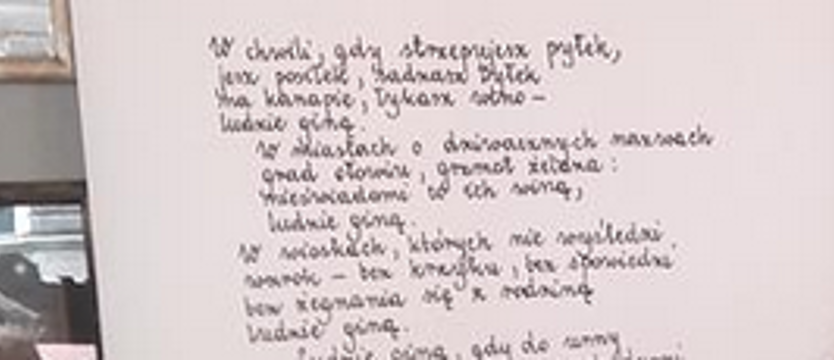 W chwili, gdy strzepujesz pyłek,
jesz posiłek, sadzasz tyłek
na kanapie, łykasz wino –
ludzie giną.
W miastach o dziwacznych nazwach
grad ołowiu, grzmot żelaza:
nieświadomi to ich winą,
ludzie giną.
W wioskach, których nie wyśledzi
wzrok – bez krzyku, bez spowiedzi
bez żegnania się z rodziną
ludzie giną.
Ludzie giną, gdy do urny